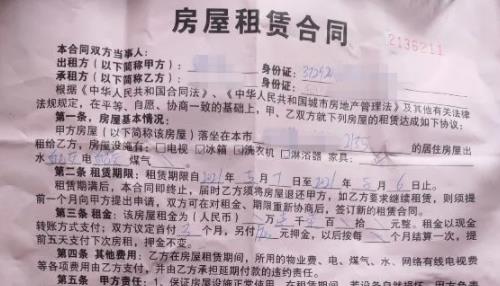 房屋租赁合同
2136211
本合同双方当事人：
出租方（以下简称甲方）： 身份证：
承租方（以下简称乙方）： 身份证：
根据《中华人民共和国合同法》、《中华人民共和国城市房地产管理法》及其他有关法律
法规规定，在平等、自愿、协商一致的基础上，甲、乙双方就下列房屋的租赁达成如下协议：
第一条，房屋基本情况：
甲方房屋（以下简称该房屋）落坐在本市 的居住房屋出
租给乙方，房屋设施有：□电视 冰箱 洗衣机 淋浴器 家具：
水 电 煤气
第二条 租赁期限：租赁期自 年5月7日至2021年8月6日止。
租赁期满后，本合同即终止，届时乙方须将房屋退还甲方，如乙方要求继续租赁，则须提
前一个月向甲方提出申请，双方可在对租金、期限重新协商后，签订新的租赁合同。
第三条 租金：该房屋租金为（人民币） 万 千 百 拾 元整。租金以现金
转账方式支付；双方议定首付3个月，另付 元押金，以后按每 个月结算一次，提
前五天支付下次房租，押金不变。
第四条 其他费用：乙方在房屋租赁期间，所用的物业费、电、煤气、水、网络有线电视费
等各项费用由乙方支付，并由乙方承担延期付款的违约责任。
第五条 甲方责任：1、保证房屋设施正常使用，在租赁期间